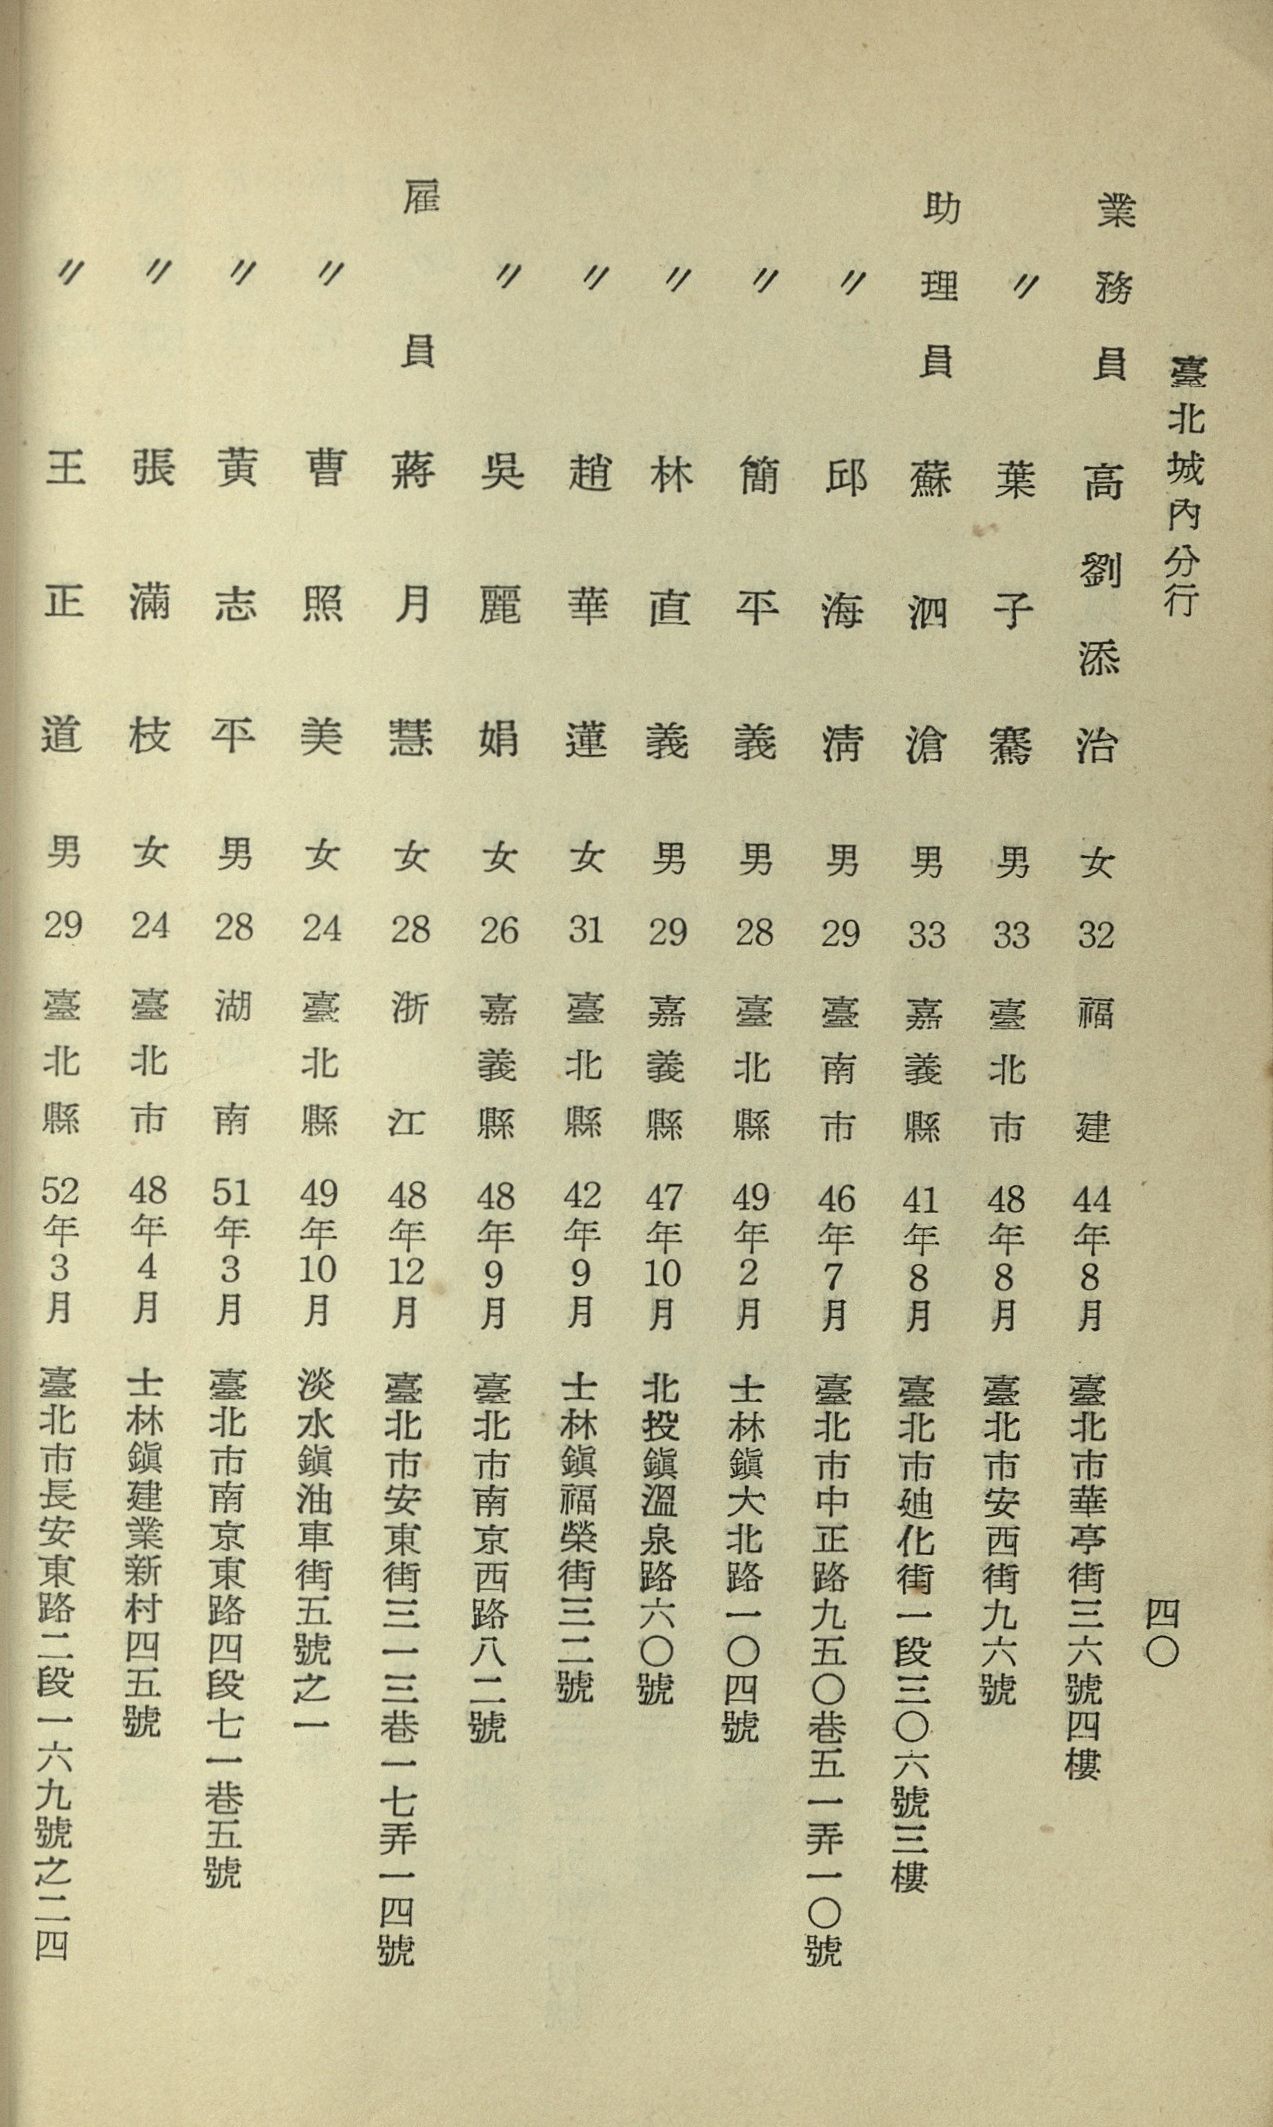 臺北城內分行
四〇
業務員 高劉添治 女 32 福建 44年8月 臺北市華亭街三六號四樓
〃 葉子騫 男 33 臺北市 48年8月 臺北市安西街九六號
助理員 蘇泗滄 男 33 嘉義縣 41年8月 臺北市廸化街一段三〇六號三樓
〃 邱海清 男 29 臺南市 46年7月 臺北市中正路九五〇巷五一弄一〇號
〃 簡平義 男 28 臺北縣 49年2月 士林鎭大北路一〇四號
〃 林直義 男 29 嘉義縣 47年10月 北投鎭溫泉路六〇號
〃 趙華蓮 女 31 臺北縣 42年9月 士林鎭福榮街三二號
〃 吳麗娟 女 26 嘉義縣 48年9月 臺北市南京西路八二號
雇員 蔣月慧 女 28 浙江 48年12月 臺北市安東街三一三巷一七弄一四號
〃 曹照美 女 24 臺北縣 49年10月 淡水鎭油車街五號之一
〃 黃志平 男 28 湖南 51年3月 臺北市南京東路四段七一巷五號
〃 張滿枝 女 24 臺北市 48年4月 士林鎭建業新村四五號
〃 王正道 男 29 臺北縣 52年3月 臺北市長安東路二段一六九號之二四